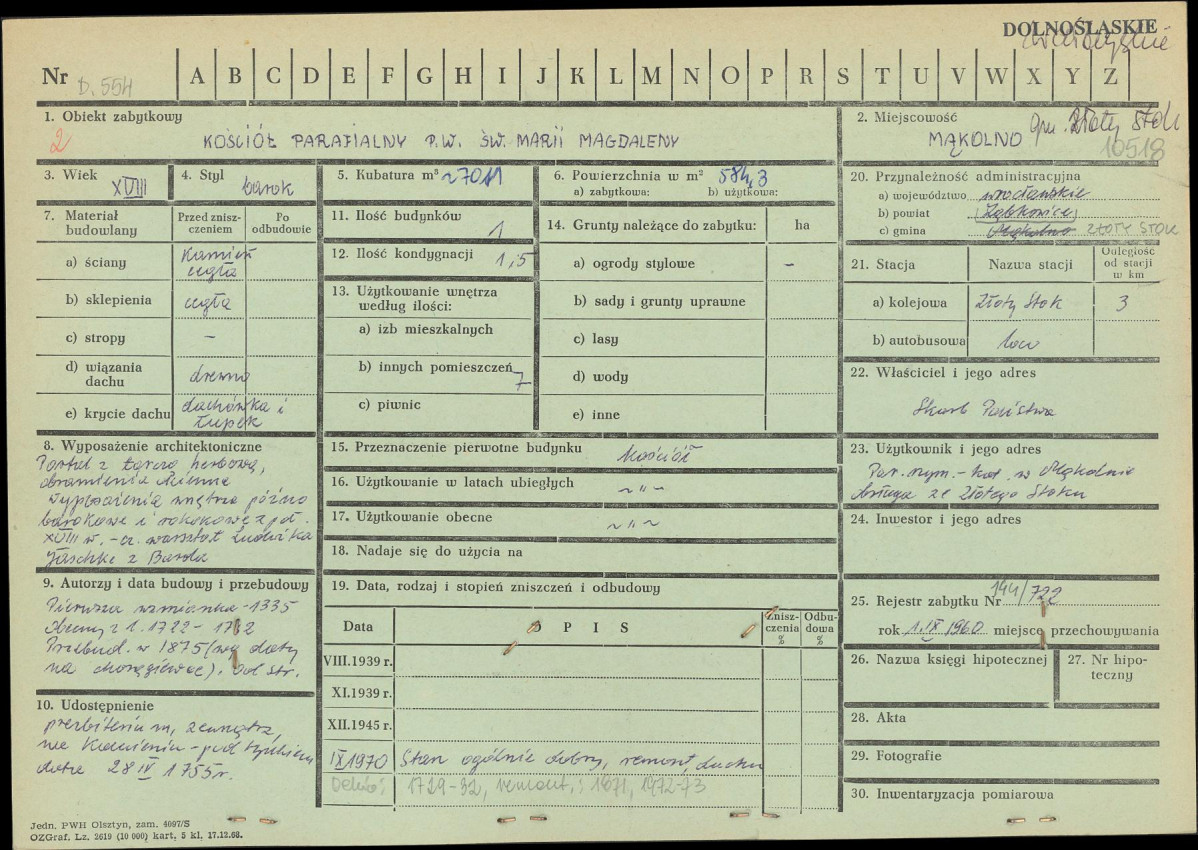 DOLNOŚLĄSKIE
Nr D. 554 A B C D E F G H I J K L M N O P R S T U V W X Y Z
1. Obiekt zabytkowy
2 KOŚCIÓŁ PARAFIALNY P.W. ŚW. MARII MAGDALENY
2. Miejscowość gm. Złoty Stok
MĄKOLNO 10518
3. Wiek XVIII
4. Styl barok
5. Kubatura m³ ~7011
6. Powierzchnia w m² 584,3
a) zabytkowa: b) użytkowa:
20. Przynależność administracyjna
a) województwo wrocławskie
b) powiat Ząbkowice
c) gmina Mąkolno ZŁOTY STOK
7. Materiał budowlany
Przed znisz-
czeniem
Po
odbudowie
a) ściany Kamień
cegła
b) sklepienia cegła
c) stropy –
d) wiązania
dachu drewno
e) krycie dachu dachówka i
łupek
11. Ilość budynków 1
12. Ilość kondygnacji 1,5
13. Użytkowanie wnętrza
według ilości:
a) izb mieszkalnych
b) innych pomieszczeń 7
c) piwnic
14. Grunty należące do zabytku: ha
a) ogrody stylowe –
b) sady i grunty uprawne
c) lasy
d) wody
e) inne
21. Stacja Nazwa stacji Odległość
od stacji
w km
a) kolejowa Złoty Stok 3
b) autobusowa loco
22. Właściciel i jego adres
Skarb Państwa
8. Wyposażenie architektoniczne
Portal z tarczą herbową,
obramienia okienne
wyposażenia wnętrza późno
barokowe i rokokowe z poł.
XVIII w. – cz. warsztat Ludwika
Jaschke z Barda
15. Przeznaczenie pierwotne budynku Kościół
16. Użytkowanie w latach ubiegłych ~ " ~
17. Użytkowanie obecne ~ " ~
18. Nadaje się do użycia na
23. Użytkownik i jego adres
Par. rzym.-kat. w Mąkolnie
obsługa ze Złotego Stoku
24. Inwestor i jego adres
9. Autorzy i data budowy i przebudowy
Pierwsza wzmianka – 1335
Obecny z l. 1722 –
Przebud. w 1875 (wg daty
na chorągiewce). Od str.
10. Udostępnienie
prezbiterium, zewnątrz,
na kamieniu – pod tynkiem
data 28 IV 1755 r.
19. Data, rodzaj i stopień zniszczeń i odbudowy
Data O P I S Znisz-
czenia
% Odbu-
dowa
%
VIII.1939 r.
XI.1939 r.
XII.1945 r.
IX 1970 Stan ogólnie dobry, remont dachu
1729-32, remont.: 1671, 1972-73
25. Rejestr zabytku Nr 144/722
rok 1.IX 1960 miejsce przechowywania
26. Nazwa księgi hipotecznej
27. Nr hipo-
teczny
28. Akta
29. Fotografie
30. Inwentaryzacja pomiarowa
Jedn. PWH Olsztyn, zam. 4097/S
OZGraf. Lz. 2619 (10 000) kart. 5 kl. 17.12.68.